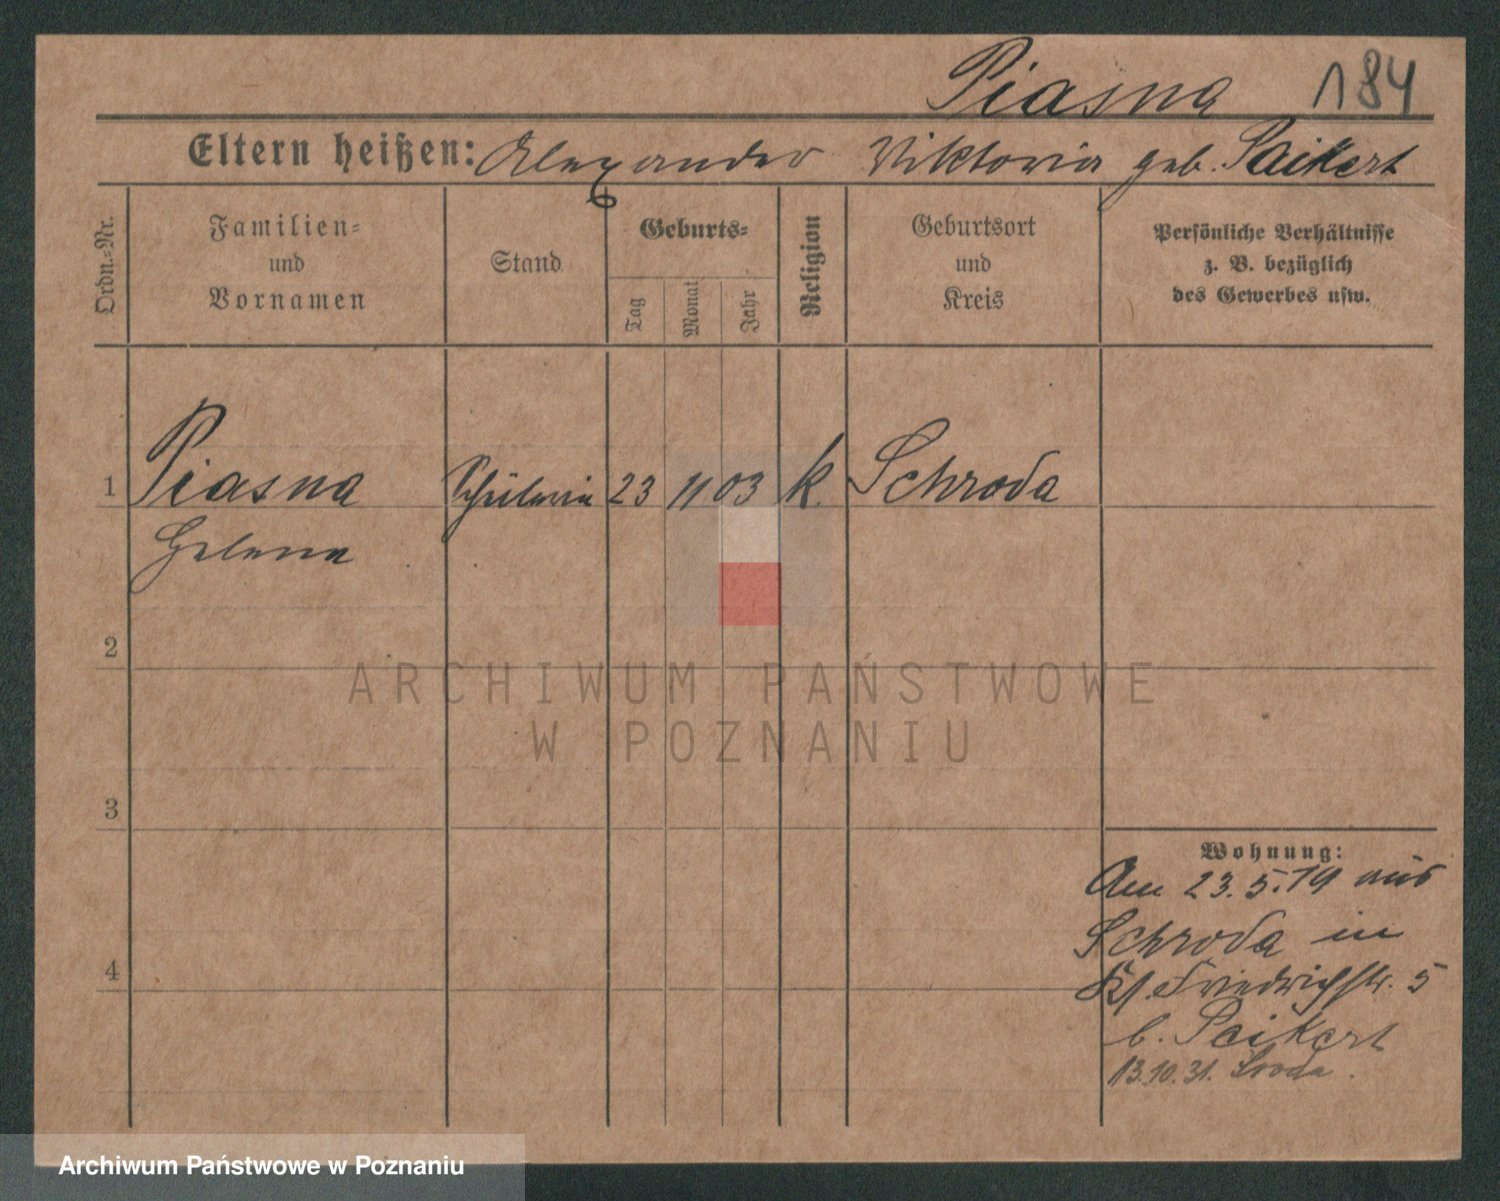 Piasna 184
Eltern heißen: Alexander Viktoria geb. Paikert
Ordn.-Nr.
Familien-
und
Vornamen
Stand
Geburts-
Tag
Monat
Jahr
Religion
Geburtsort
und
Kreis
Persönliche Verhältnisse
z. B. bezüglich
des Gewerbes usw.
1 Piasna Schülerin 23 11 03 k. Schroda
Helena
2
3
4
Wohnung:
Am 23.5.19 aus
Schroda in
Friedrichstr. 5
b. Peikert
13.10.31. Sroda.
ARCHIWUM PAŃSTWOWE
W POZNANIU
Archiwum Państwowe w Poznaniu